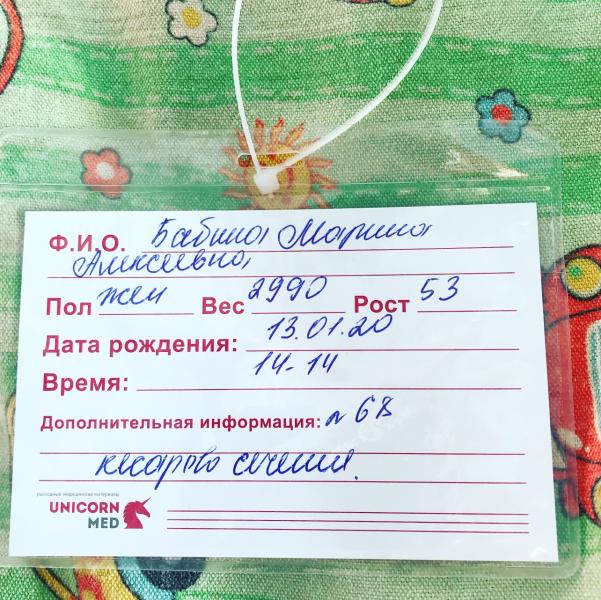 Ф.И.О. Бабина Марина
Алексеевна
Пол жен Вес 2990 Рост 53
Дата рождения: 13.01.20
Время: 14-14
Дополнительная информация: п 68
кесарево сечения.
расходные медицинские материалы
UNICORN
MED